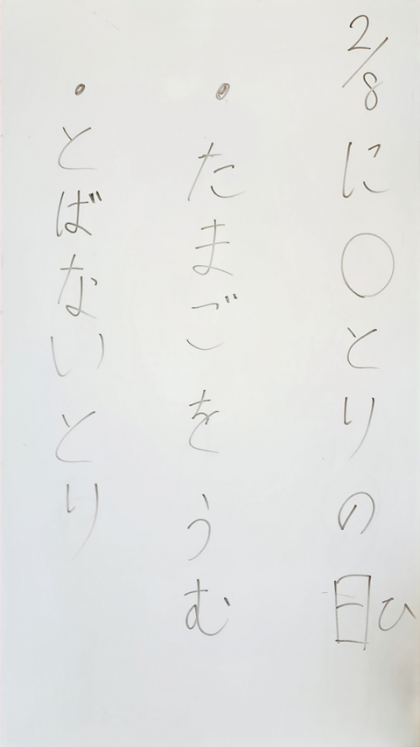 2/8に〇とりの日ひ
・たまごをうむ
・とばないとり